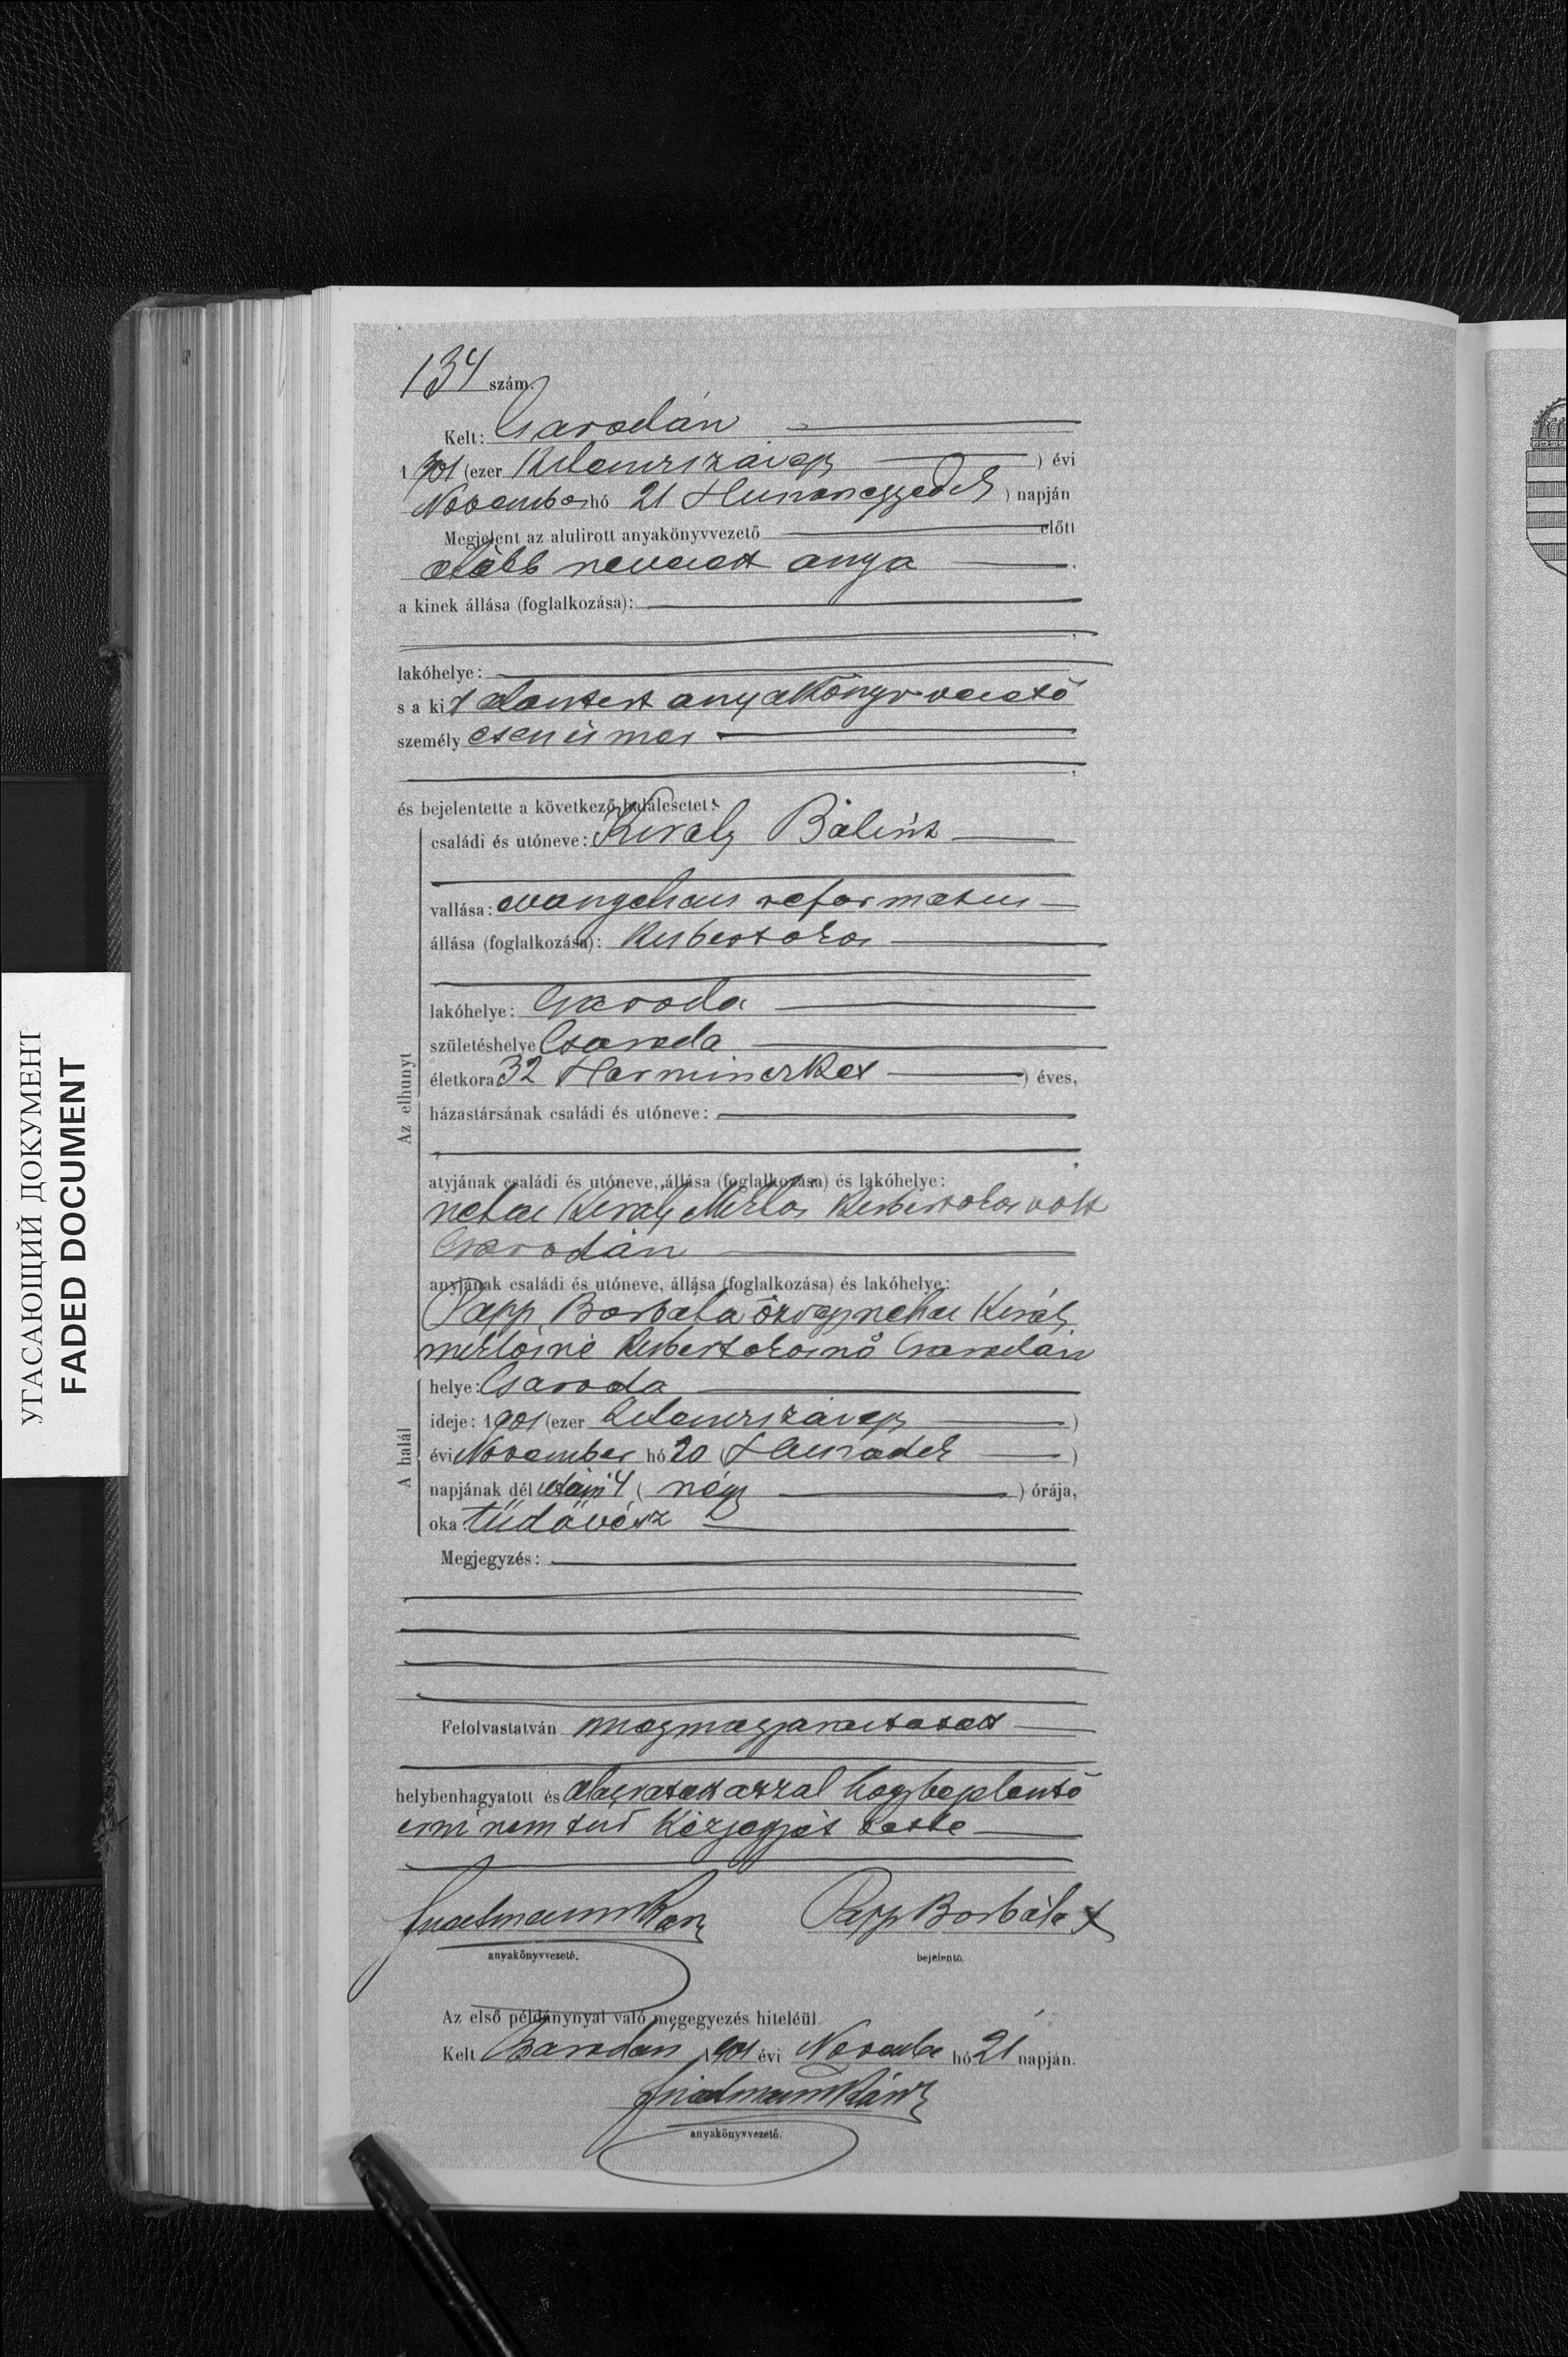 134 szám.
Kelt: Csarodán
1901 (ezer kilencszázegy) évi
November hó 21 Huszonegyedik) napján
Megjelent az alulirott anyakönyvvezető előtt
alább nevezett anya.
a kinek állása (foglalkozása):
lakóhelye:
s a kit alantirt anyakönyvvezető
személy esen ismer
és bejelentette a következő halálesetet:
Az elhunyt
családi és utóneve: Király Bálint
vallása: evangelicus reformatus
állása (foglalkozása): kisbirtokos
lakóhelye: Csaroda
születéshelye Csaroda
életkora 32 Harminczket) éves,
házastársának családi és utóneve:
atyjának családi és utóneve, állása (foglalkozása) és lakóhelye:
nehai Király Miklós kisbirtokos volt
Csarodán
anyjának családi és utóneve, állása (foglalkozása) és lakóhelye:
Papp Borbála özvegy néhai Király
miklósné kisbirtokosnő Csarodán
A halál
helye: Csaroda
ideje: 1901 (ezer kilencszázegy)
évi November hó 20 (Huszadik)
napjának dél után 4 (négy) órája,
oka: tüdővész
Megjegyzés:
Felolvastatván megmagyaráztatott
helybenhagyatott és aláíratott azzal hogy bejelentő
irni nem tud kézjegyét tette
anyakönyvvezető.
Papp Borbála X
bejelentő.
Az első példánynyal való megegyezés hiteléül.
Kelt Csarodán 1901 évi November hó 21 napján.
anyakönyvvezető.
УГАСАЮЩИЙ ДОКУМЕНТ
FADED DOCUMENT